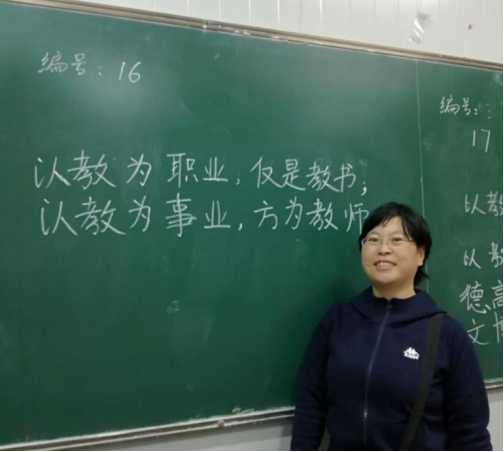 编号：16
以教为职业，仅是教书；
以教为事业，方为教师
编号：
17
以教
以教
德高
文博